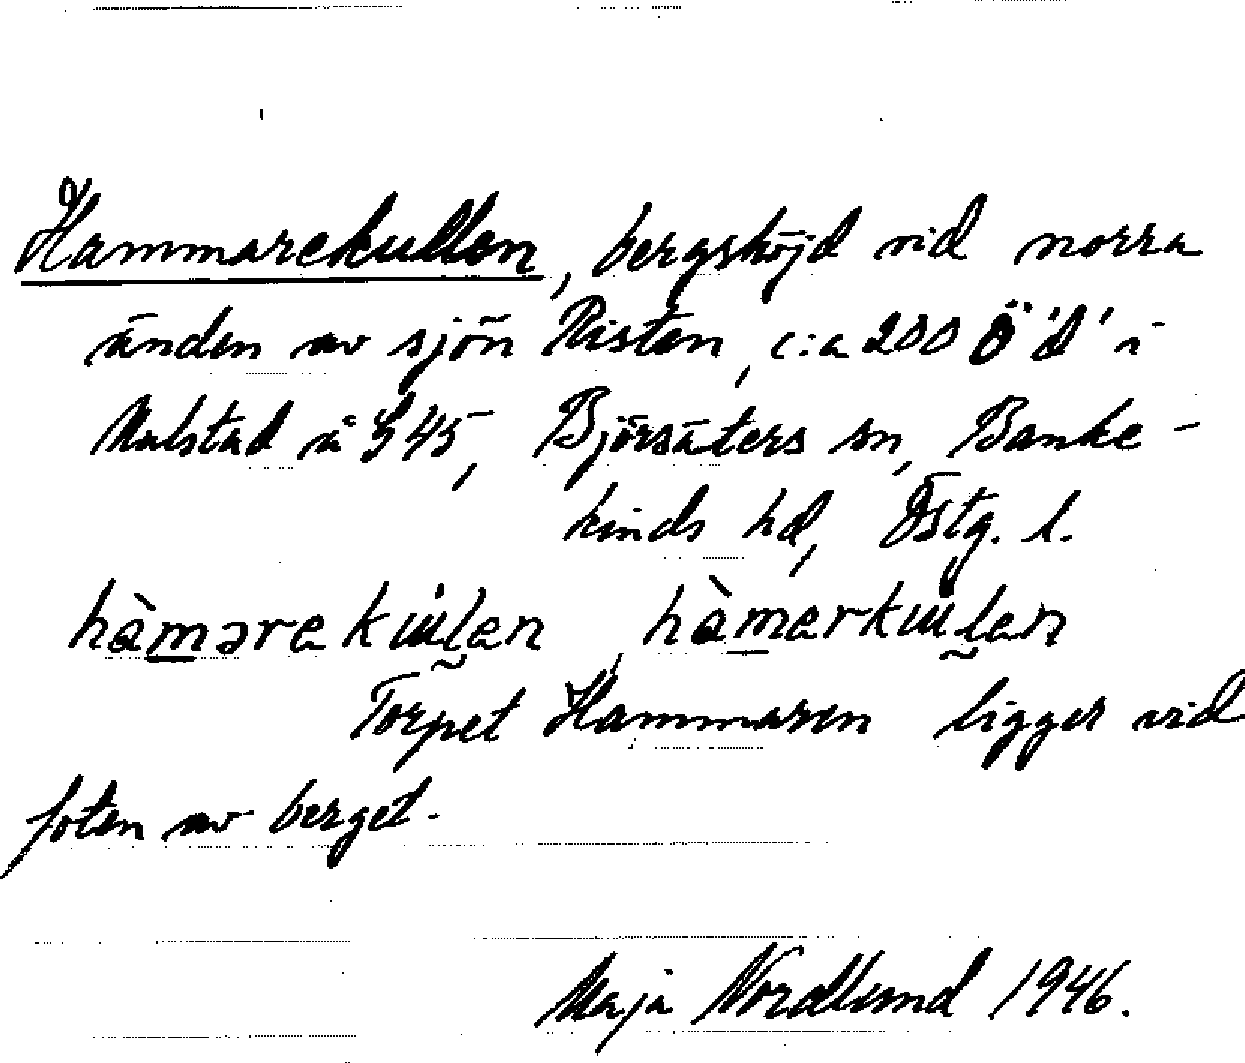 Hammarekullen, bergshöjd vid norra
änden av sjön Risten, c:a 200 Ö 'd' i
Malstad å S 45, Björsäters sn, Banke-
kinds hd, Östg. l.
hàmərekulen, hàmərkulen
Torpet Hammaren ligger vid
foten av berget.
Maja Nordlund 1946.